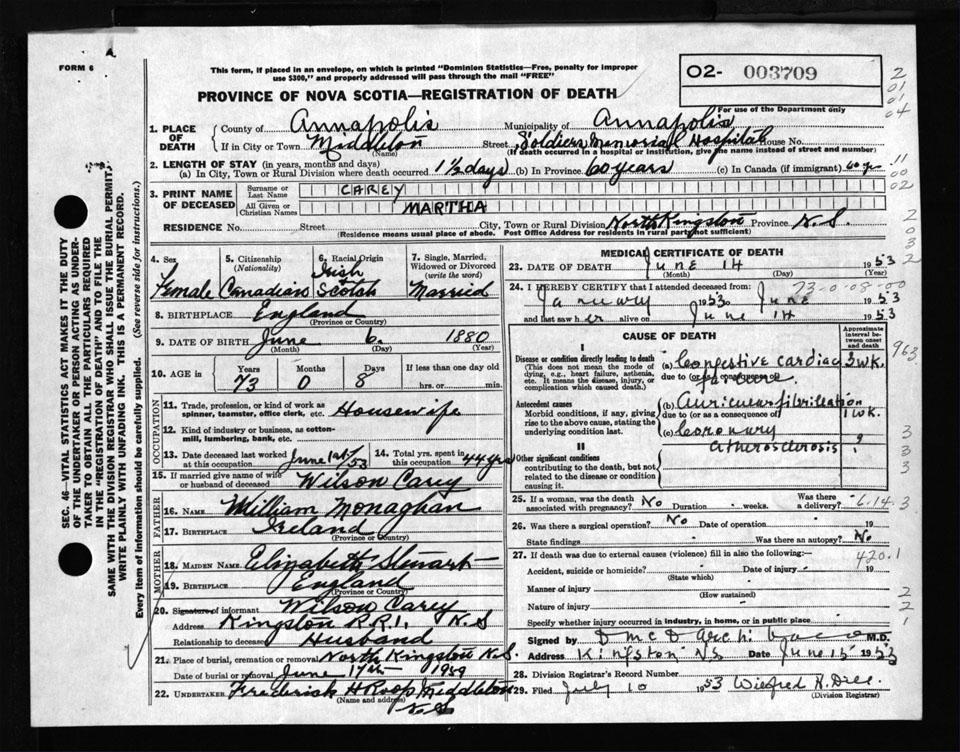 FORM 6
This form, if placed in an envelope, on which is printed "Dominion Statistics—Free, penalty for improper
use $300," and properly addressed will pass through the mail "FREE"
PROVINCE OF NOVA SCOTIA—REGISTRATION OF DEATH
02- 003709
For use of the Department only
1. PLACE OF DEATH County of Annapolis Municipality of Annapolis
If in City or Town Middleton (Name) Street Soldiers Memorial Hospital House No.
(If death occurred in a hospital or institution, give the name instead of street and number)
2. LENGTH OF STAY (in years, months and days)
(a) In City, Town or Rural Division where death occurred 1½ days (b) In Province 60 years (c) In Canada (if immigrant) 60 yr
3. PRINT NAME OF DECEASED
Surname or Last Name CAREY
All Given or Christian Names MARTHA
RESIDENCE No. Street City, Town or Rural Division North Kingston Province N.S.
(Residence means usual place of abode. Post Office Address for residents in rural parts not sufficient)
4. Sex Female
5. Citizenship (Nationality) Canadian
6. Racial Origin Irish Scotch
7. Single, Married, Widowed or Divorced (write the word) Married
8. BIRTHPLACE England (Province or Country)
9. DATE OF BIRTH June (Month) 6 (Day) 1880 (Year)
10. AGE in Years 73 Months 0 Days 8 If less than one day old hrs. or min.
OCCUPATION
11. Trade, profession, or kind of work as spinner, teamster, office clerk, etc. Housewife
12. Kind of industry or business, as cotton-mill, lumbering, bank, etc.
13. Date deceased last worked at this occupation June 1st/53
14. Total yrs. spent in this occupation 44 yrs
15. If married give name of wife or husband of deceased Wilson Carey
FATHER
16. NAME William Monaghan
17. BIRTHPLACE Ireland (Province or Country)
MOTHER
18. MAIDEN NAME Elizabeth Stewart
19. BIRTHPLACE England (Province or Country)
20. Signature of informant Wilson Carey
Address Kingston R.R.1, N.S
Relationship to deceased Husband
21. Place of burial, cremation or removal North Kingston N.S.
Date of burial or removal June 17th 1959
22. UNDERTAKER Frederick H Roop Middleton N.S
(Name and address)
MEDICAL CERTIFICATE OF DEATH
23. DATE OF DEATH June (Month) 14 (Day) 1953 (Year)
24. I HEREBY CERTIFY that I attended deceased from: 73-0-08-00
January 1953 to June 1953
and last saw her alive on June 14 1953
CAUSE OF DEATH
Approximate interval between onset and death
I
Disease or condition directly leading to death (This does not mean the mode of dying, e.g., heart failure, asthenia, etc. It means the disease, injury, or complication which caused death.)
(a) Congestive cardiac 3 wk.
due to (or as consequence of)
Antecedent causes
Morbid conditions, if any, giving rise to the above cause, stating the underlying condition last.
(b) Auricular fibrillation 1 wk.
due to (or as a consequence of)
(c) Coronary atherosclerosis ?
II
Other significant conditions contributing to the death, but not related to the disease or condition causing it.
25. If a woman, was the death associated with pregnancy? No Duration weeks. Was there a delivery?
6.14.3
26. Was there a surgical operation? No Date of operation 19
State findings Was there an autopsy? No
27. If death was due to external causes (violence) fill in also the following:—
420.1
Accident, suicide or homicide? (State which) Date of injury 19
Manner of injury (How sustained)
Nature of injury
Specify whether injury occurred in industry, in home, or in public place
Signed by M.D.
Address Kingston NS Date June 15 1953
28. Division Registrar's Record Number
29. Filed July 10 1953 Wilfred (Division Registrar)
SEC. 46—VITAL STATISTICS ACT MAKES IT THE DUTY
OF THE UNDERTAKER OR PERSON ACTING AS UNDER-
TAKER TO OBTAIN ALL THE PARTICULARS REQUIRED
IN THE "REGISTRATION OF DEATH" AND TO FILE THE
SAME WITH THE DIVISION REGISTRAR WHO SHALL ISSUE THE BURIAL PERMIT.
WRITE PLAINLY WITH UNFADING INK. THIS IS A PERMANENT RECORD.
Every item of information should be carefully supplied. (See reverse side for instructions.)
2
01
01
04
11
00
02
2
0
3
2
963
3
3
3
2
2
1